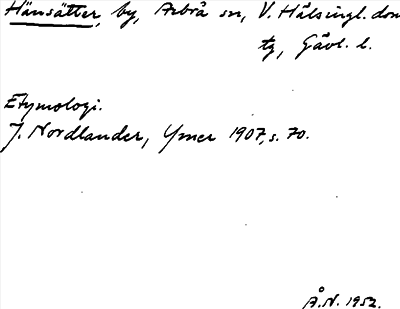 Hänsätter, by, Arbrå sn, V. Hälsingl. dom
tg, Gävl. l.
Etymologi.
J. Nordlander, Ymer 1907, s. 70.
Å.N. 1952.